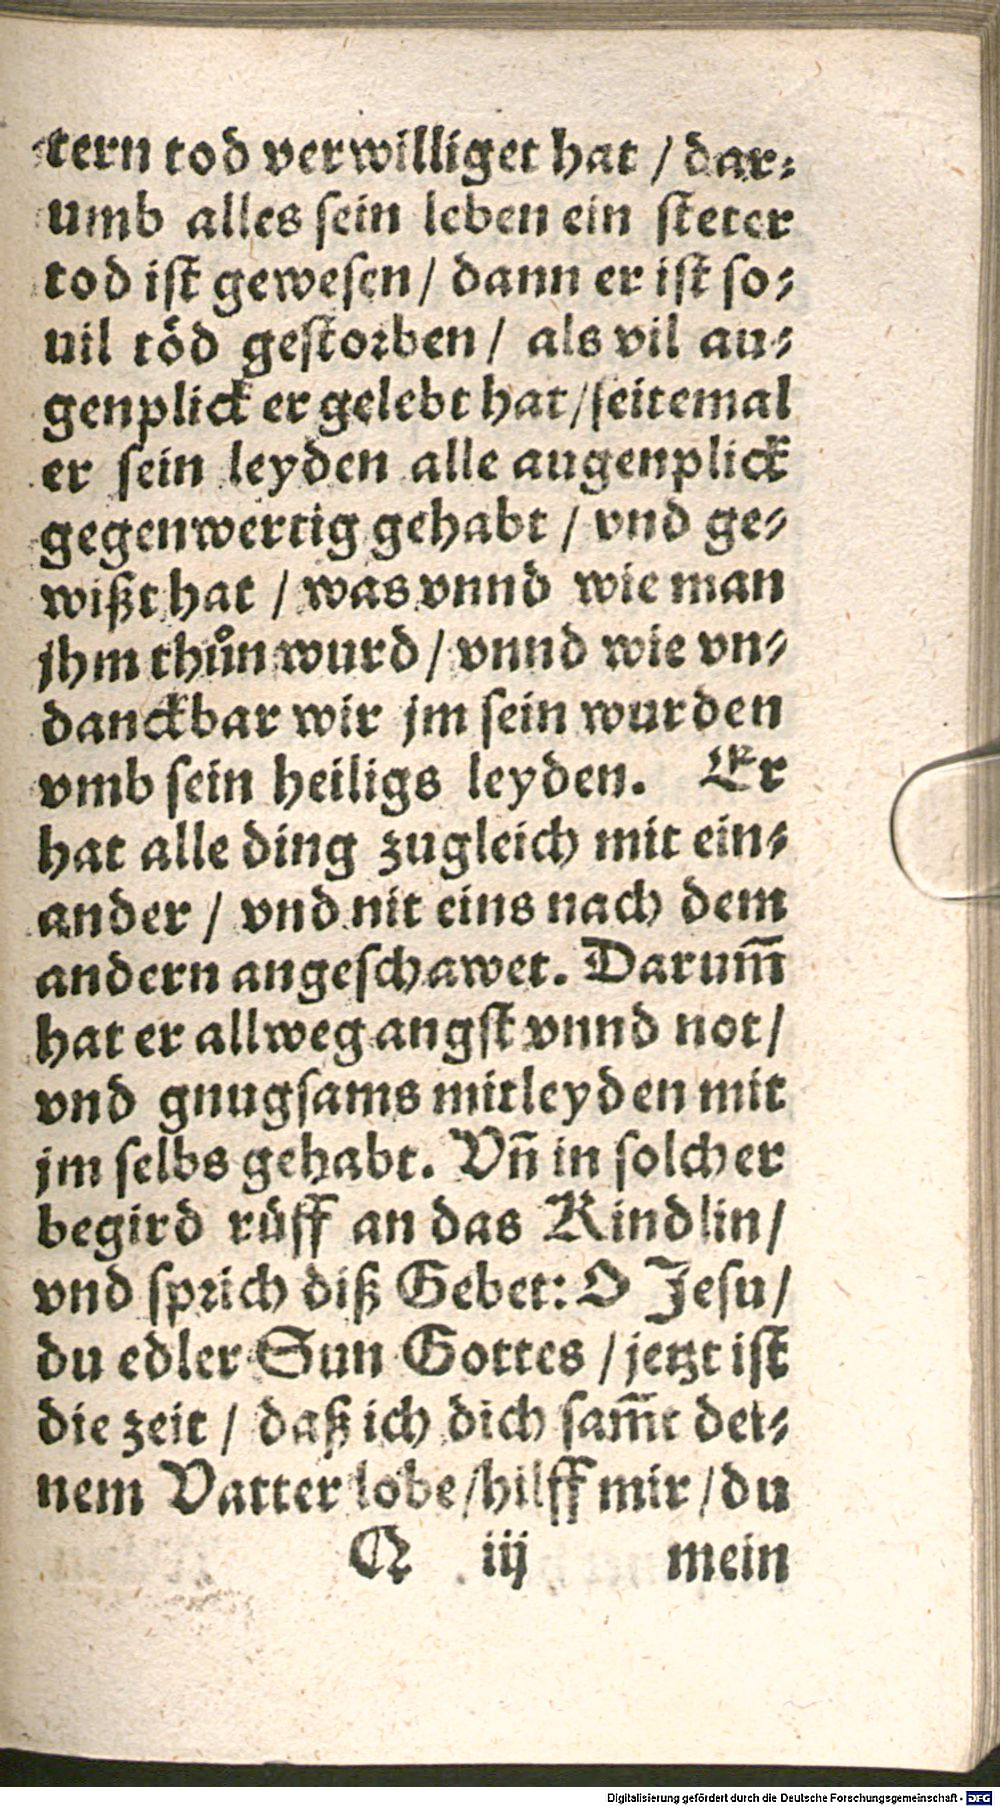 tern tod verwilliget hat / dar⸗
umb alles sein leben ein steter
tod ist gewesen / dann er ist so⸗
uil töd gestorben / als vil au⸗
genplick er gelebt hat / seitemal
er sein leyden alle augenplick
gegenwertig gehabt / vnd ge⸗
wißt hat / was vnnd wie man
jhm thůn wurd / vnnd wie vn⸗
danckbar wir jm sein wurden
vmb sein heiligs leyden. Er
hat alle ding zugleich mit ein⸗
ander / vnd nit eins nach dem
andern angeschawet. Darum̃
hat er allweg angst vnnd not /
vnd gnugsams mitleyden mit
jm selbs gehabt. Vñ in solcher
begird rüff an das Kindlin /
vnd sprich diß Gebet: O Jesu /
du edler Sun Gottes / jetzt ist
die zeit / daß ich dich sam̃t dei⸗
nem Vatter lobe / hilff mir / du
Q iij mein
Digitalisierung gefördert durch die Deutsche Forschungsgemeinschaft - DFG